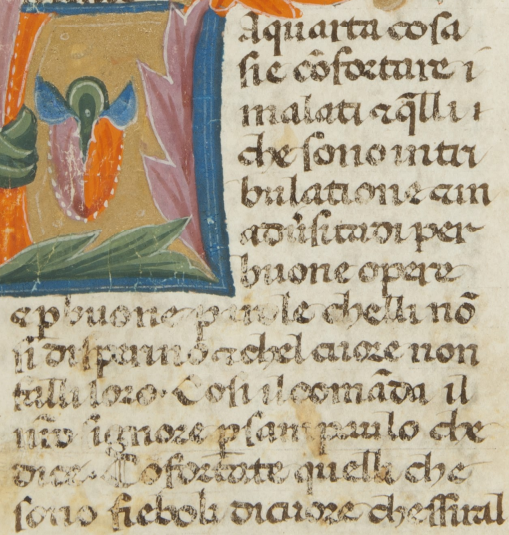 Aquarta cosa
sie cōfortare i
malati ⁊ q̄lli i
che sono intri
bulatione ⁊ in
aduˀsitadi per
buone opere
⁊ ꝑ buone parole chelli nō
si disperino ⁊ chel cuore non
falli loro. Cosi il comāda il
nr̄o signore ꝑ san paulo che
dice. Cōfortate quelli che
sono fieboli di cuore chessiral